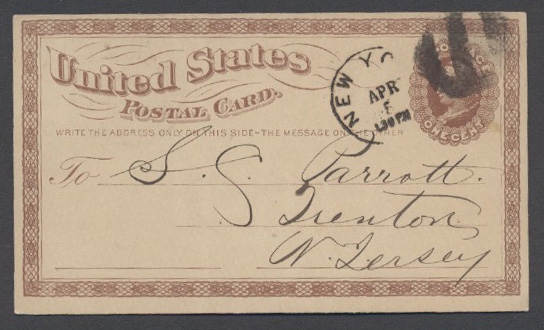 United States
POSTAL CARD.
WRITE THE ADDRESS ONLY ON THIS SIDE-THE MESSAGE ON THE OTHER
NEW YO
APR
5
ONE CENT
To S. G. Parrott.
Trenton
N. Jersey